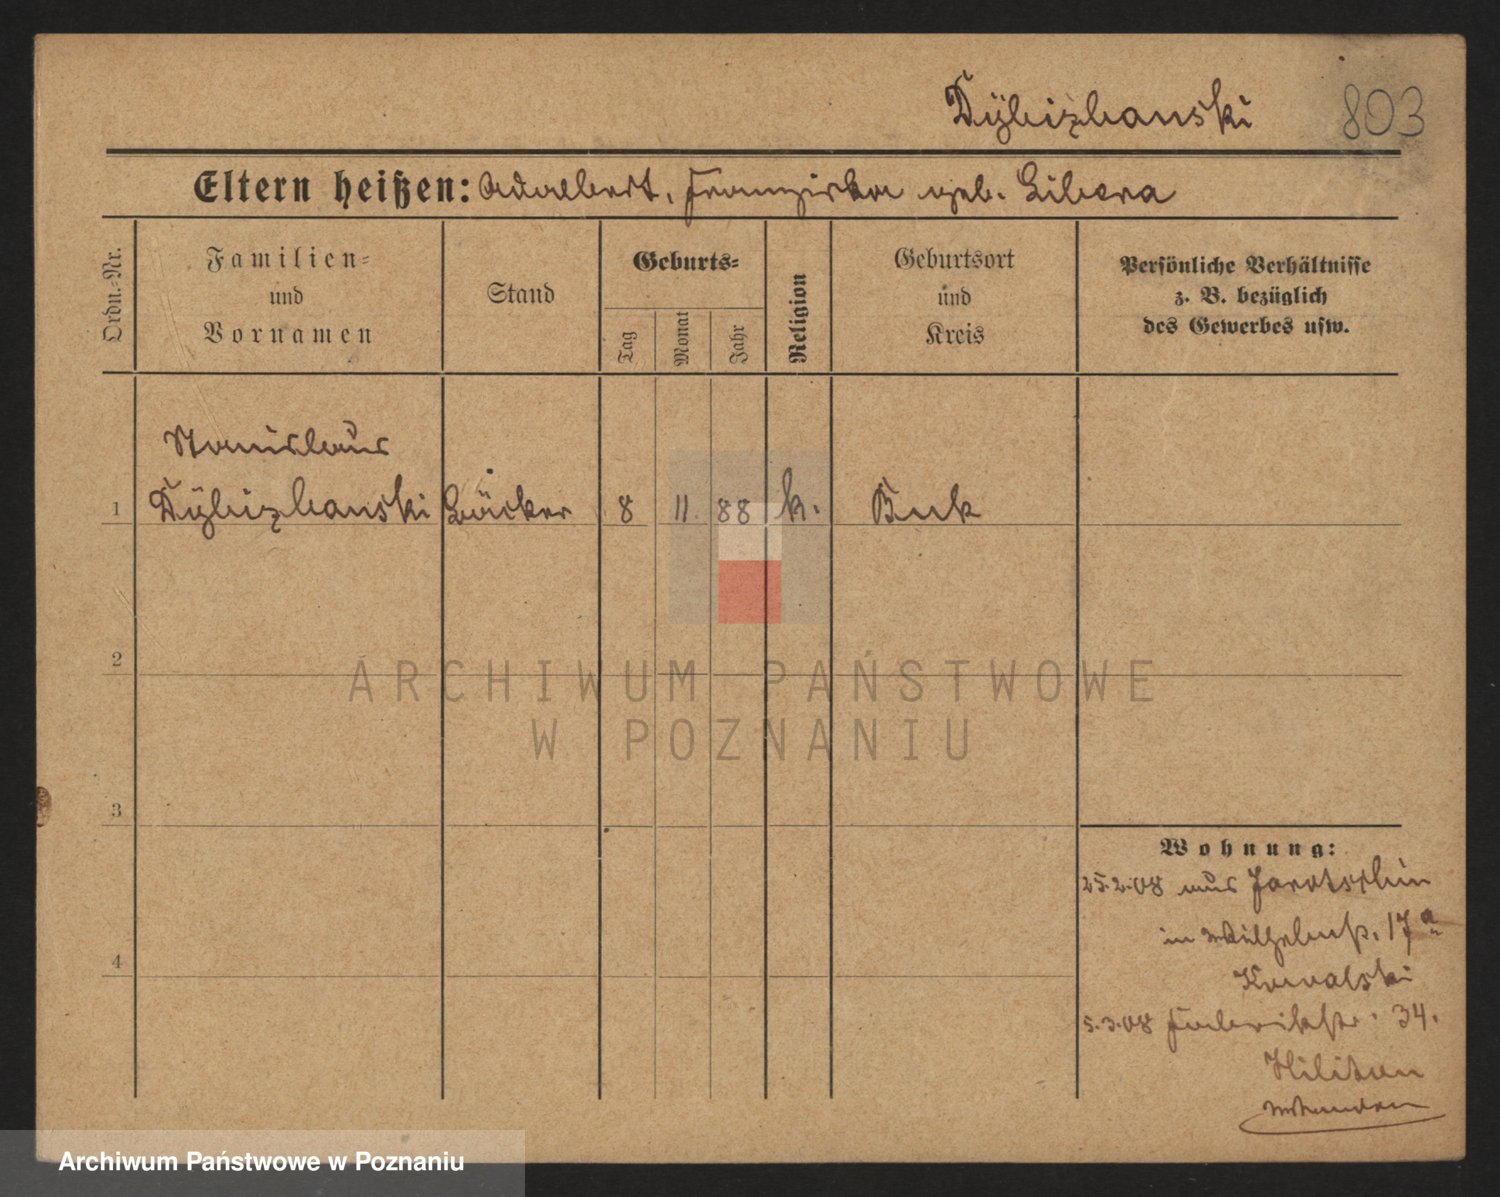 Dybizbanski 803
Eltern heißen: Adalbert, Franziska geb. Libera
Ordn.-Nr.
Familien-
und
Vornamen
Stand
Geburts-
Tag
Monat
Jahr
Religion
Geburtsort
und
Kreis
Persönliche Verhältnisse
z. B. bezüglich
des Gewerbes usw.
Stanislaus
1 Dybizbanski Bäcker 8 11. 88 k. Buk
2
3
4
Wohnung:
25.2.08 aus Jarotschin
in Wilhelmstr. 17a
Kowalski
5.3.08 Fabrikstr. 34.
ARCHIWUM PAŃSTWOWE
W POZNANIU
Archiwum Państwowe w Poznaniu